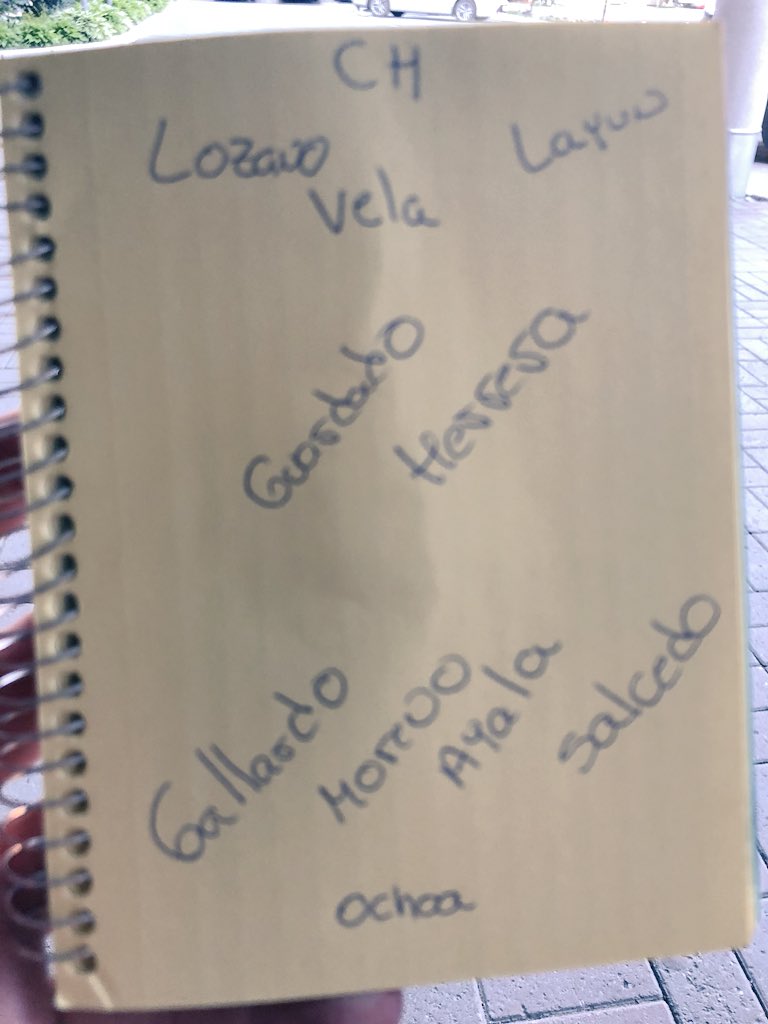 CH
Lozano Layun
Vela
Guardado Herrera
Gallardo Moreno Ayala Salcedo
Ochoa